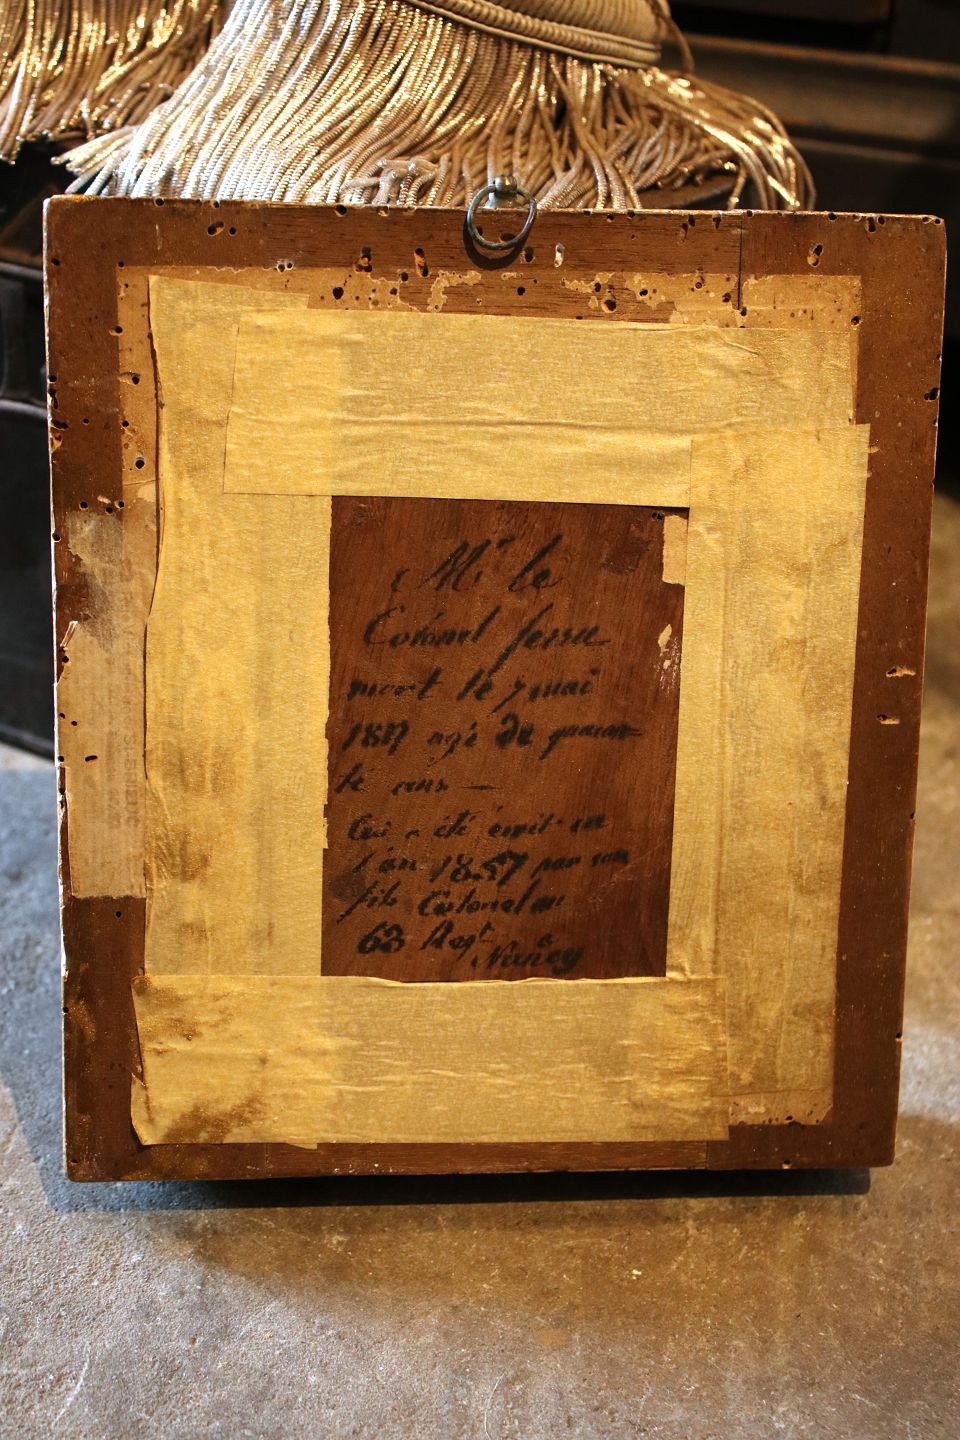 Mr le
Colonel
mort le 7 mai
1817 agé de quaran-
te ans —
Ceci a été écrit en
l'an 1857 par son
fils Colonel au
63 Regt
Nancy